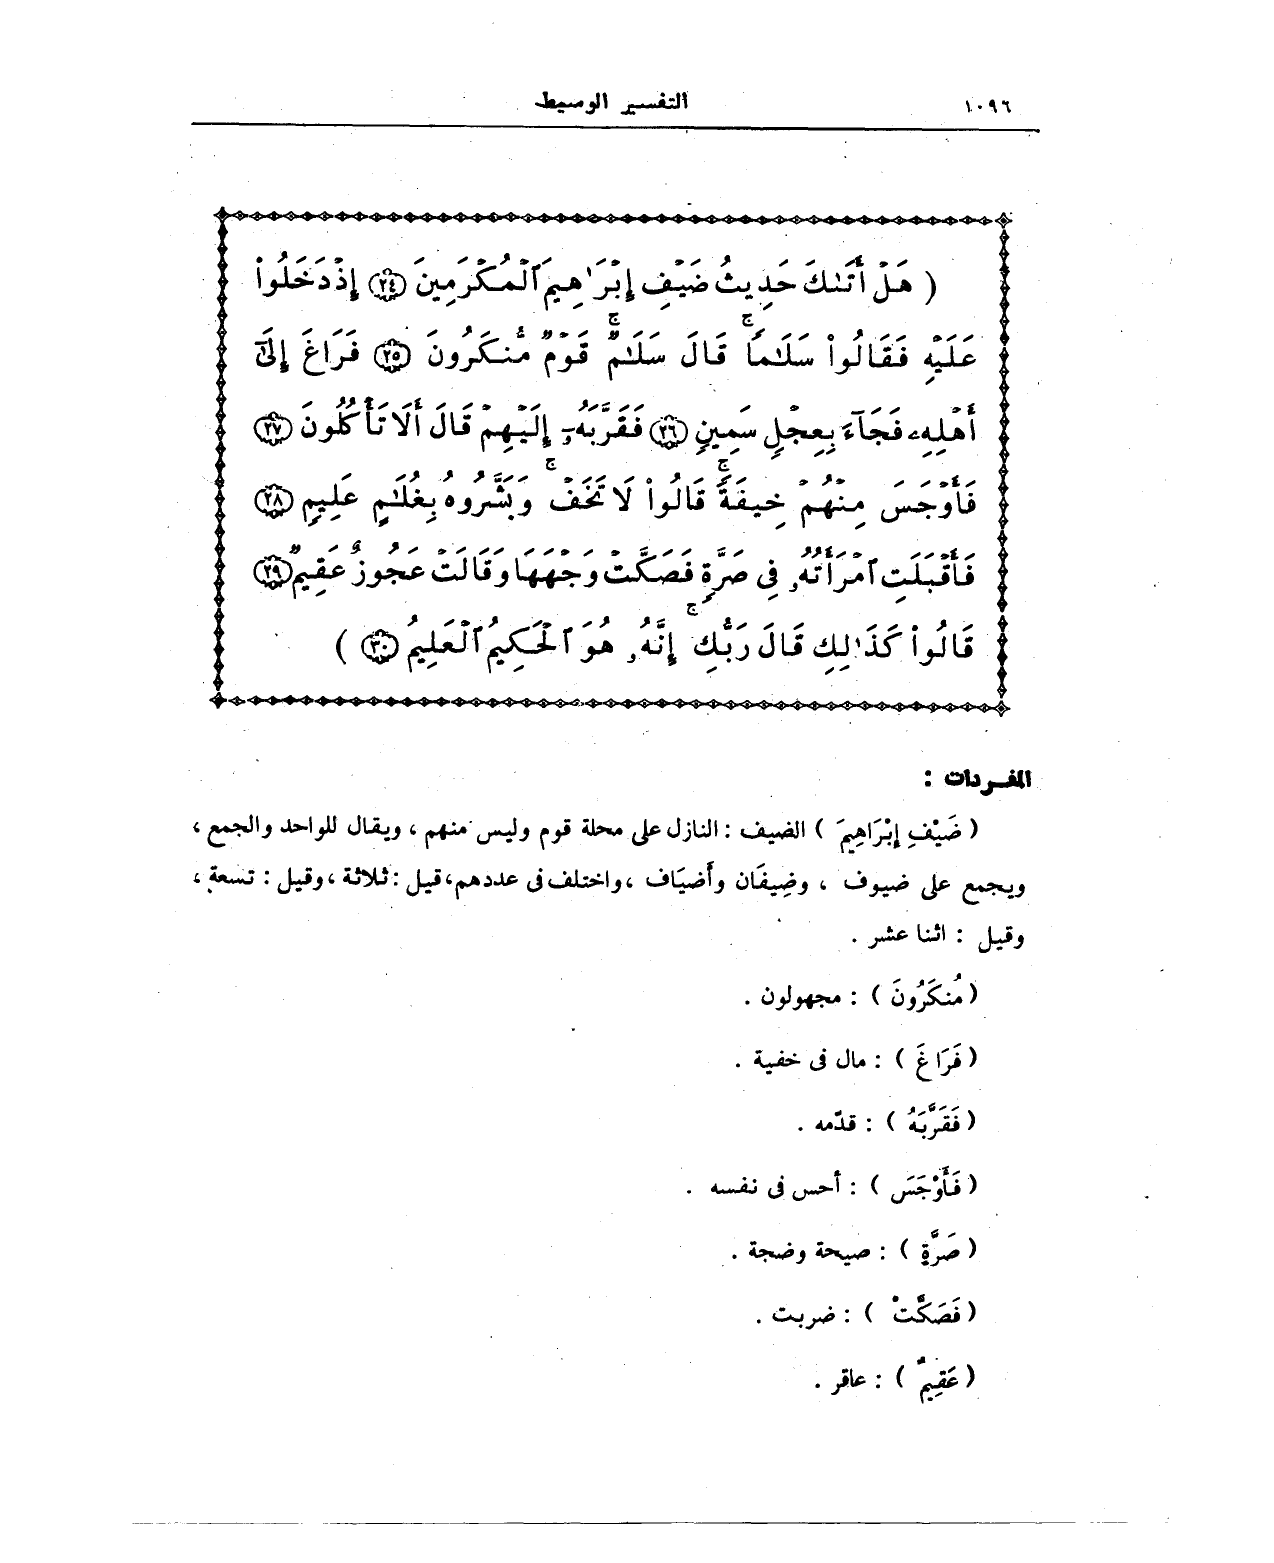 ١٠٩٦ التفسير الوسيط
( هَلْ أَتَىٰكَ حَدِيثُ ضَيْفِ إِبْرَٰهِيمَ ٱلْمُكْرَمِينَ ٢٤ إِذْ دَخَلُوا۟
عَلَيْهِ فَقَالُوا۟ سَلَٰمًا ۖ قَالَ سَلَٰمٌ ۚ قَوْمٌ مُّنكَرُونَ ٢٥ فَرَاغَ إِلَىٰٓ
أَهْلِهِۦ فَجَآءَ بِعِجْلٍ سَمِينٍ ٢٦ فَقَرَّبَهُۥٓ إِلَيْهِمْ قَالَ أَلَا تَأْكُلُونَ ٢٧
فَأَوْجَسَ مِنْهُمْ خِيفَةً ۚ قَالُوا۟ لَا تَخَفْ ۚ وَبَشَّرُوهُ بِغُلَٰمٍ عَلِيمٍ ٢٨
فَأَقْبَلَتِ ٱمْرَأَتُهُۥ فِى صَرَّةٍ فَصَكَّتْ وَجْهَهَا وَقَالَتْ عَجُوزٌ عَقِيمٌ ٢٩
قَالُوا۟ كَذَٰلِكِ قَالَ رَبُّكِ ۚ إِنَّهُۥ هُوَ ٱلْحَكِيمُ ٱلْعَلِيمُ ٣٠ )
المفردات :
( ضَيْفِ إِبْرَاهِيمَ ) الضيف : النازل على محلة قوم وليس منهم ، ويقال للواحد والجمع ،
ويجمع على ضيوف ، وضِيفَان وأَضيَاف ، واختلف فى عددهم، قيل : ثلاثة ، وقيل : تسعة ،
وقيل : اثنا عشر .
( مُنكَرُونَ ) : مجهولون .
( فَرَاغَ ) : مال فى خفية .
( فَقَرَّبَهُ ) : قدّمه .
( فَأَوْجَسَ ) : أحس فى نفسه .
( صَرَّةٍ ) : صيحة وضجة .
( فَصَكَّتْ ) : ضربت .
( عَقِيمٌ ) : عاقر .